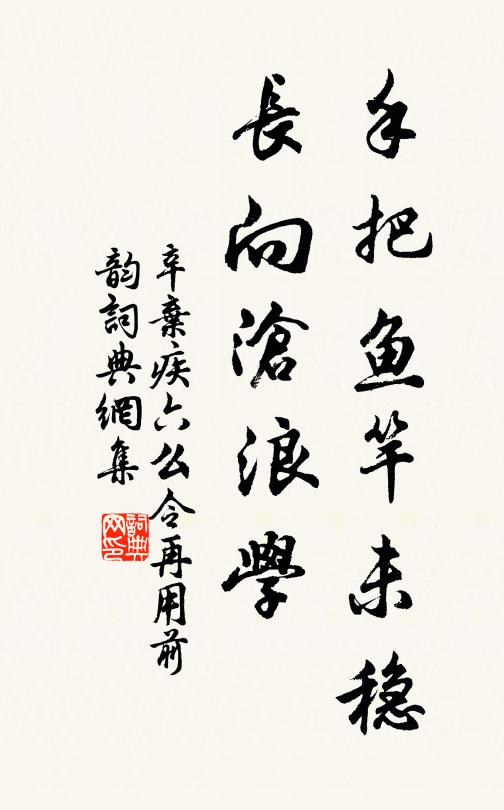 手把鱼竿未稳
長向滄浪學
辛棄疾六么令再用前
韵詞典網集
詞典
网印